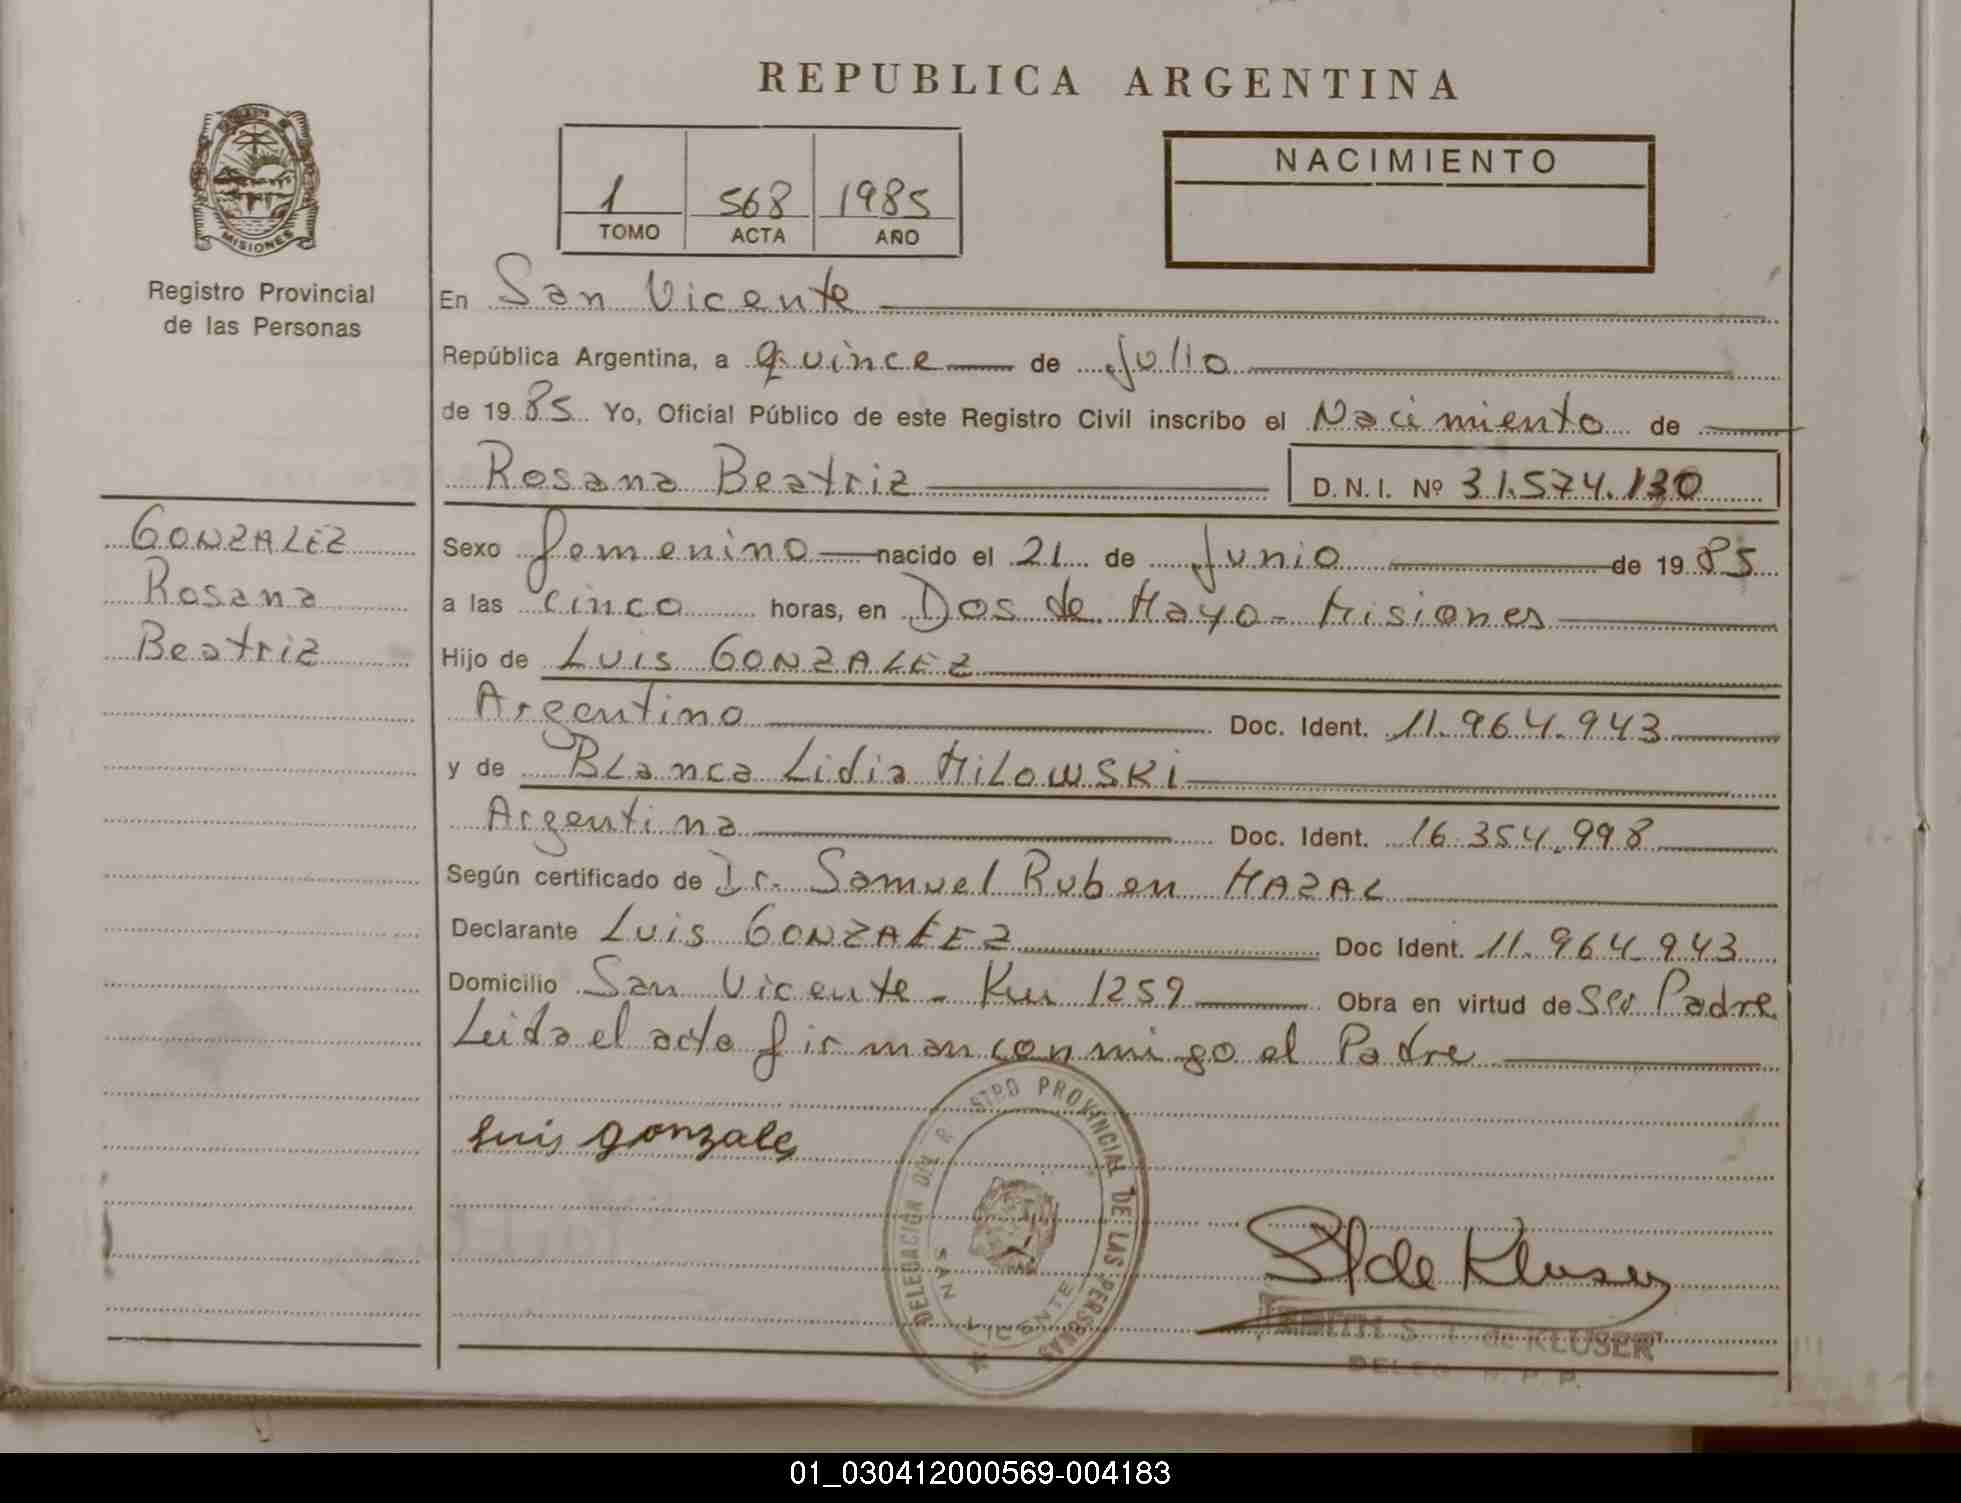 REPUBLICA ARGENTINA
MISIONES
Registro Provincial
de las Personas
1 568 1985
TOMO ACTA AÑO
NACIMIENTO
En San Vicente
República Argentina, a quince de Julio
de 1985 Yo, Oficial Público de este Registro Civil inscribo el Nacimiento de
Rosana Beatriz D.N.I. Nº 31.574.130
GONZALEZ
Rosana
Beatriz
Sexo femenino nacido el 21 de Junio de 1985
a las cinco horas, en Dos de Mayo - Misiones
Hijo de Luis GONZALEZ
Argentino Doc. Ident. 11.964.943
y de Blanca Lidia MILOWSKI
Argentina Doc. Ident. 16.354.998
Según certificado de Dr. Samuel Ruben MAZAL
Declarante Luis GONZALEZ Doc Ident. 11.964.943
Domicilio San Vicente - Km 1259 Obra en virtud de ser Padre
Leida el acta firman conmigo el Padre
Luis gonzalez
DELEGACIÓN STRO PROVINCIAL DE LAS PERSONAS
SAN VICENTE
de Kluser
EDITH S. de KLUSER
DELEG R. P. P.
01_030412000569-004183